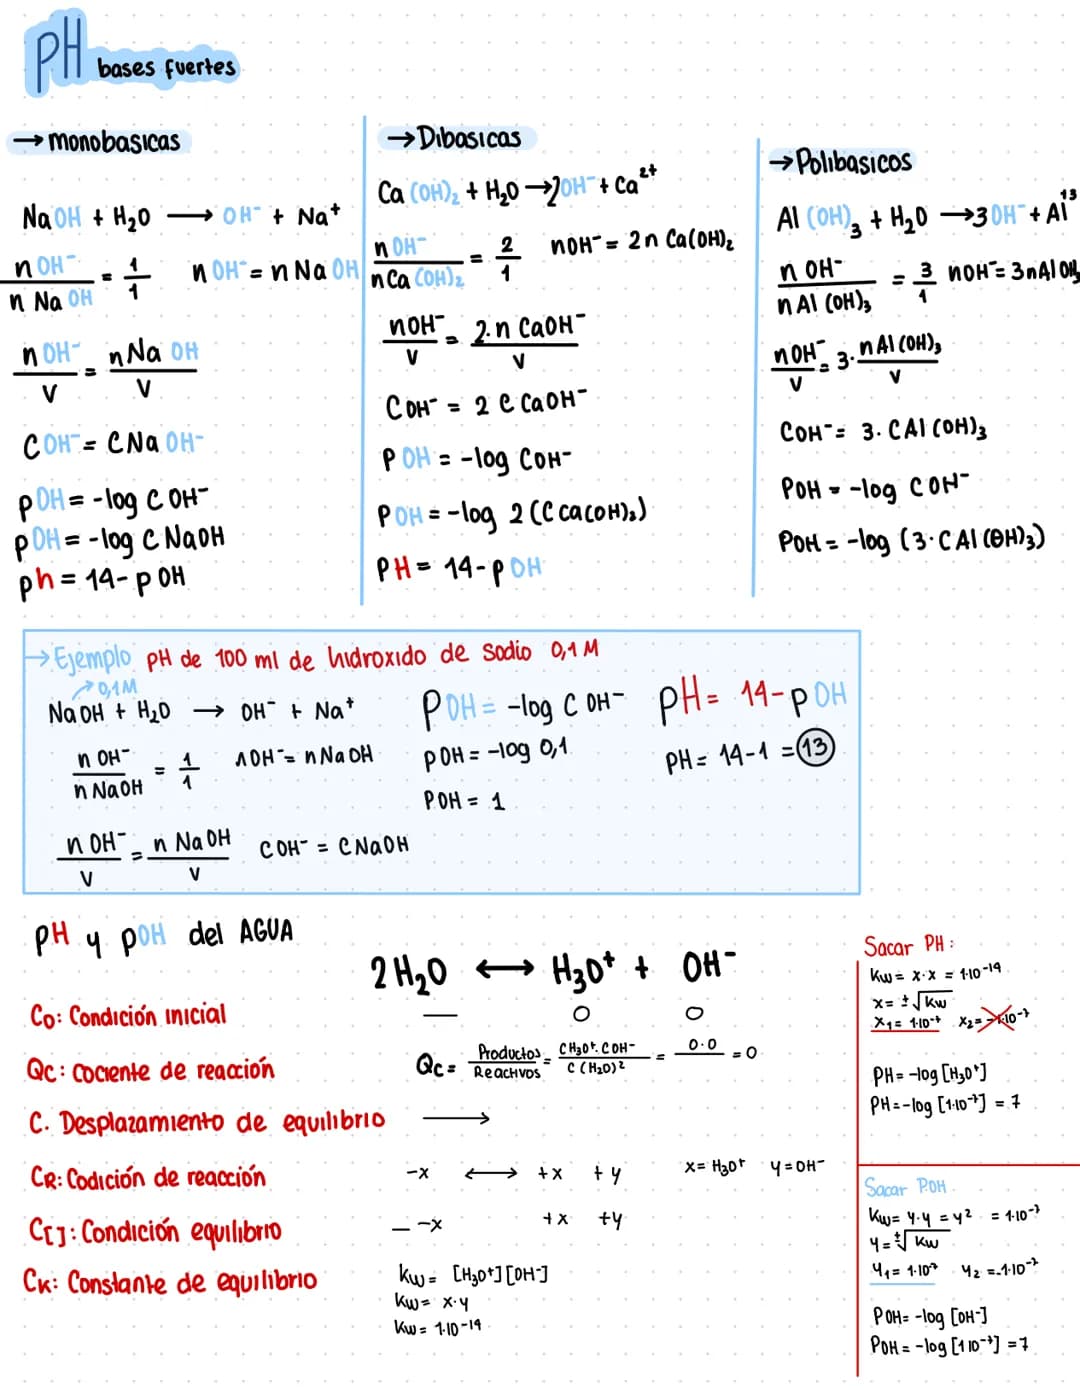 PH bases fuertes
→ monobasicas
Na OH + H₂O → OH⁻ + Na⁺
n OH⁻ / n Na OH = 1/1   n OH⁻ = n Na OH
n OH⁻ / V = n Na OH / V
C OH⁻ = C Na OH⁻
pOH = -log C OH⁻
pOH = -log C NaOH
ph = 14 - p OH
→ Dibasicas
Ca (OH)₂ + H₂O → 2OH⁻ + Ca²⁺
n OH⁻ / n Ca (OH)₂ = 2/1   nOH⁻ = 2 n Ca(OH)₂
nOH⁻ / V = 2. n CaOH⁻ / V
COH⁻ = 2 C CaOH⁻
P OH = -log COH⁻
P OH = -log 2 (C Ca(OH)₂)
PH = 14 - p OH
→ Polibasicos
Al (OH)₃ + H₂O → 3 OH⁻ + Al⁺³
n OH⁻ / n Al (OH)₃ = 3/1   nOH⁻ = 3nAl OH₃
nOH⁻ / V = 3. n Al (OH)₃ / V
COH⁻ = 3. C Al (OH)₃
POH = -log C OH⁻
POH = -log (3·C Al (OH)₃)
→ Ejemplo pH de 100 ml de hidroxido de Sodio 0,1 M
0,1M
Na OH + H₂O → OH⁻ + Na⁺
n OH⁻ / n NaOH = 1/1   nOH⁻ = n Na OH
n OH⁻ / V = n Na OH / V   C OH⁻ = C NaOH
POH = -log C OH⁻
pOH = -log 0,1
POH = 1
pH = 14 - p OH
PH = 14 - 1 = 13
pH y pOH del AGUA
2 H₂O ↔ H₃O⁺ + OH⁻
Co: Condición inicial — 0 0
Qc: cociente de reacción   Qc = Productos / Reactivos = CH₃O⁺. COH⁻ / C (H₂O)² = 0·0 / = 0
C. Desplazamiento de equilibrio →
CR: Codición de reacción   -x ↔ +x +y   x = H₃O⁺ y = OH⁻
C[]: Condición equilibrio   — -x +x +y
CK: Constante de equilibrio   kw = [H₃O⁺] [OH⁻]
kw = x·y
kw = 1·10⁻¹⁴
Sacar PH :
kw = x·x = 1·10⁻¹⁴
x = ±√kw
x₁ = 1·10⁻⁷   x₂ = -1·10⁻⁷
PH = -log [H₃O⁺]
PH = -log [1·10⁻⁷] = 7
Sacar POH
kw = y·y = y² = 1·10⁻⁷
y = ±√kw
y₁ = 1·10⁷   y₂ = -1·10⁻⁷
POH = -log [OH⁻]
POH = -log [1 10⁻⁷] = 7